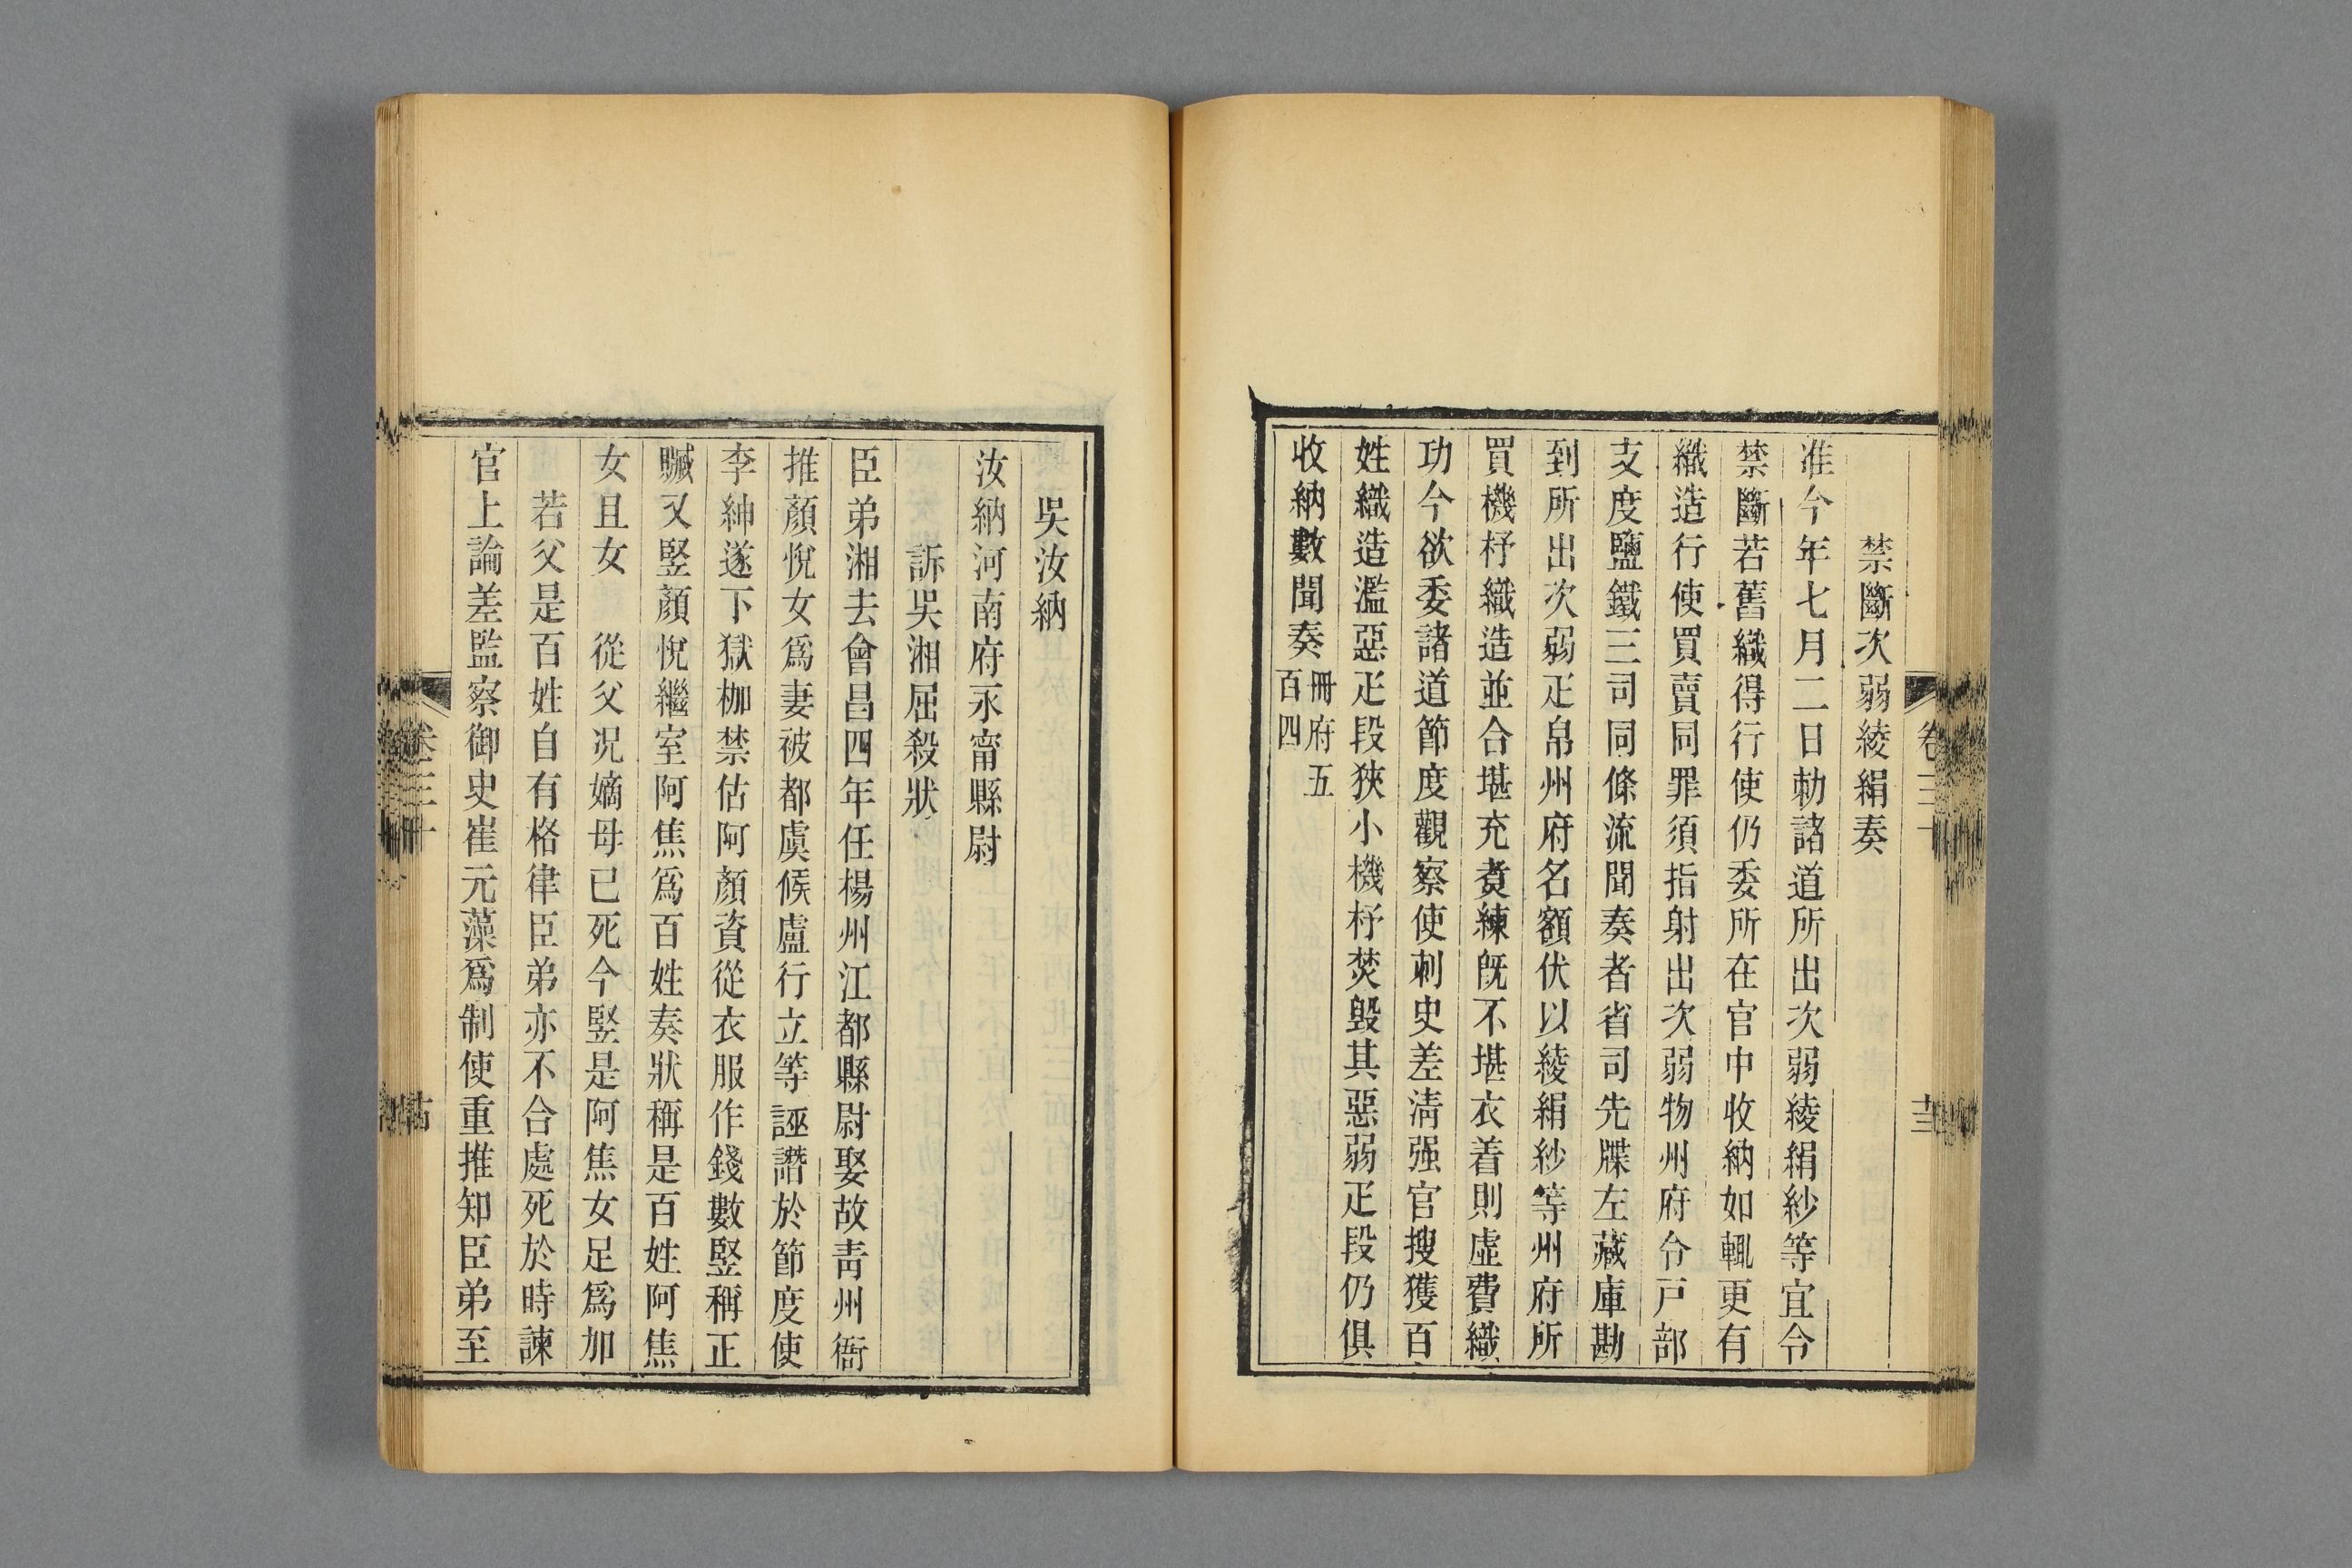 禁斷次弱綾絹奏
准今年七月二日勅諸道所出次弱綾絹紗等宜令
禁斷若舊織得行使仍委所在官中收納如輒更有
織造行使買賣同罪須指射出次弱物州府令戸部
支度鹽鐵三司同條流聞奏者省司先牒左藏庫勘
到所出次弱疋帛州府名額伏以綾絹紗等州府所
買機杼織造並合堪充煮練旣不堪衣着則虛費織
功今欲委諸道節度觀察使刺史差淸强官搜獲百
姓織造濫惡疋段狹小機杼焚毀其惡弱疋段仍俱
收納數聞奏冊府五
百四
卷三十
吳汝納
汝納河南府永甯縣尉
訴吳湘屈殺狀
臣弟湘去會昌四年任楊州江都縣尉娶故靑州衙
推顏悅女爲妻被都虞候盧行立等誣譖於節度使
李紳遂下獄枷禁估阿顏資從衣服作錢數竪稱正
贓又竪顏悅繼室阿焦爲百姓奏狀稱是百姓阿焦
女且女 從父况嫡母已死今竪是阿焦女足爲加
若父是百姓自有格律臣弟亦不合處死於時諫
官上論差監察御史崔元藻爲制使重推知臣弟至
卷三十